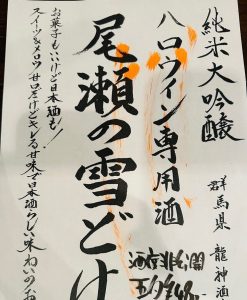 純米大吟醸
ハロウイン専用酒
尾瀬の雪どけ
お菓子もいいけど日本酒も!
スイーツ&メロウ 甘口だけどキレる甘味で日本酒らしい味わいの
群馬県 龍神酒